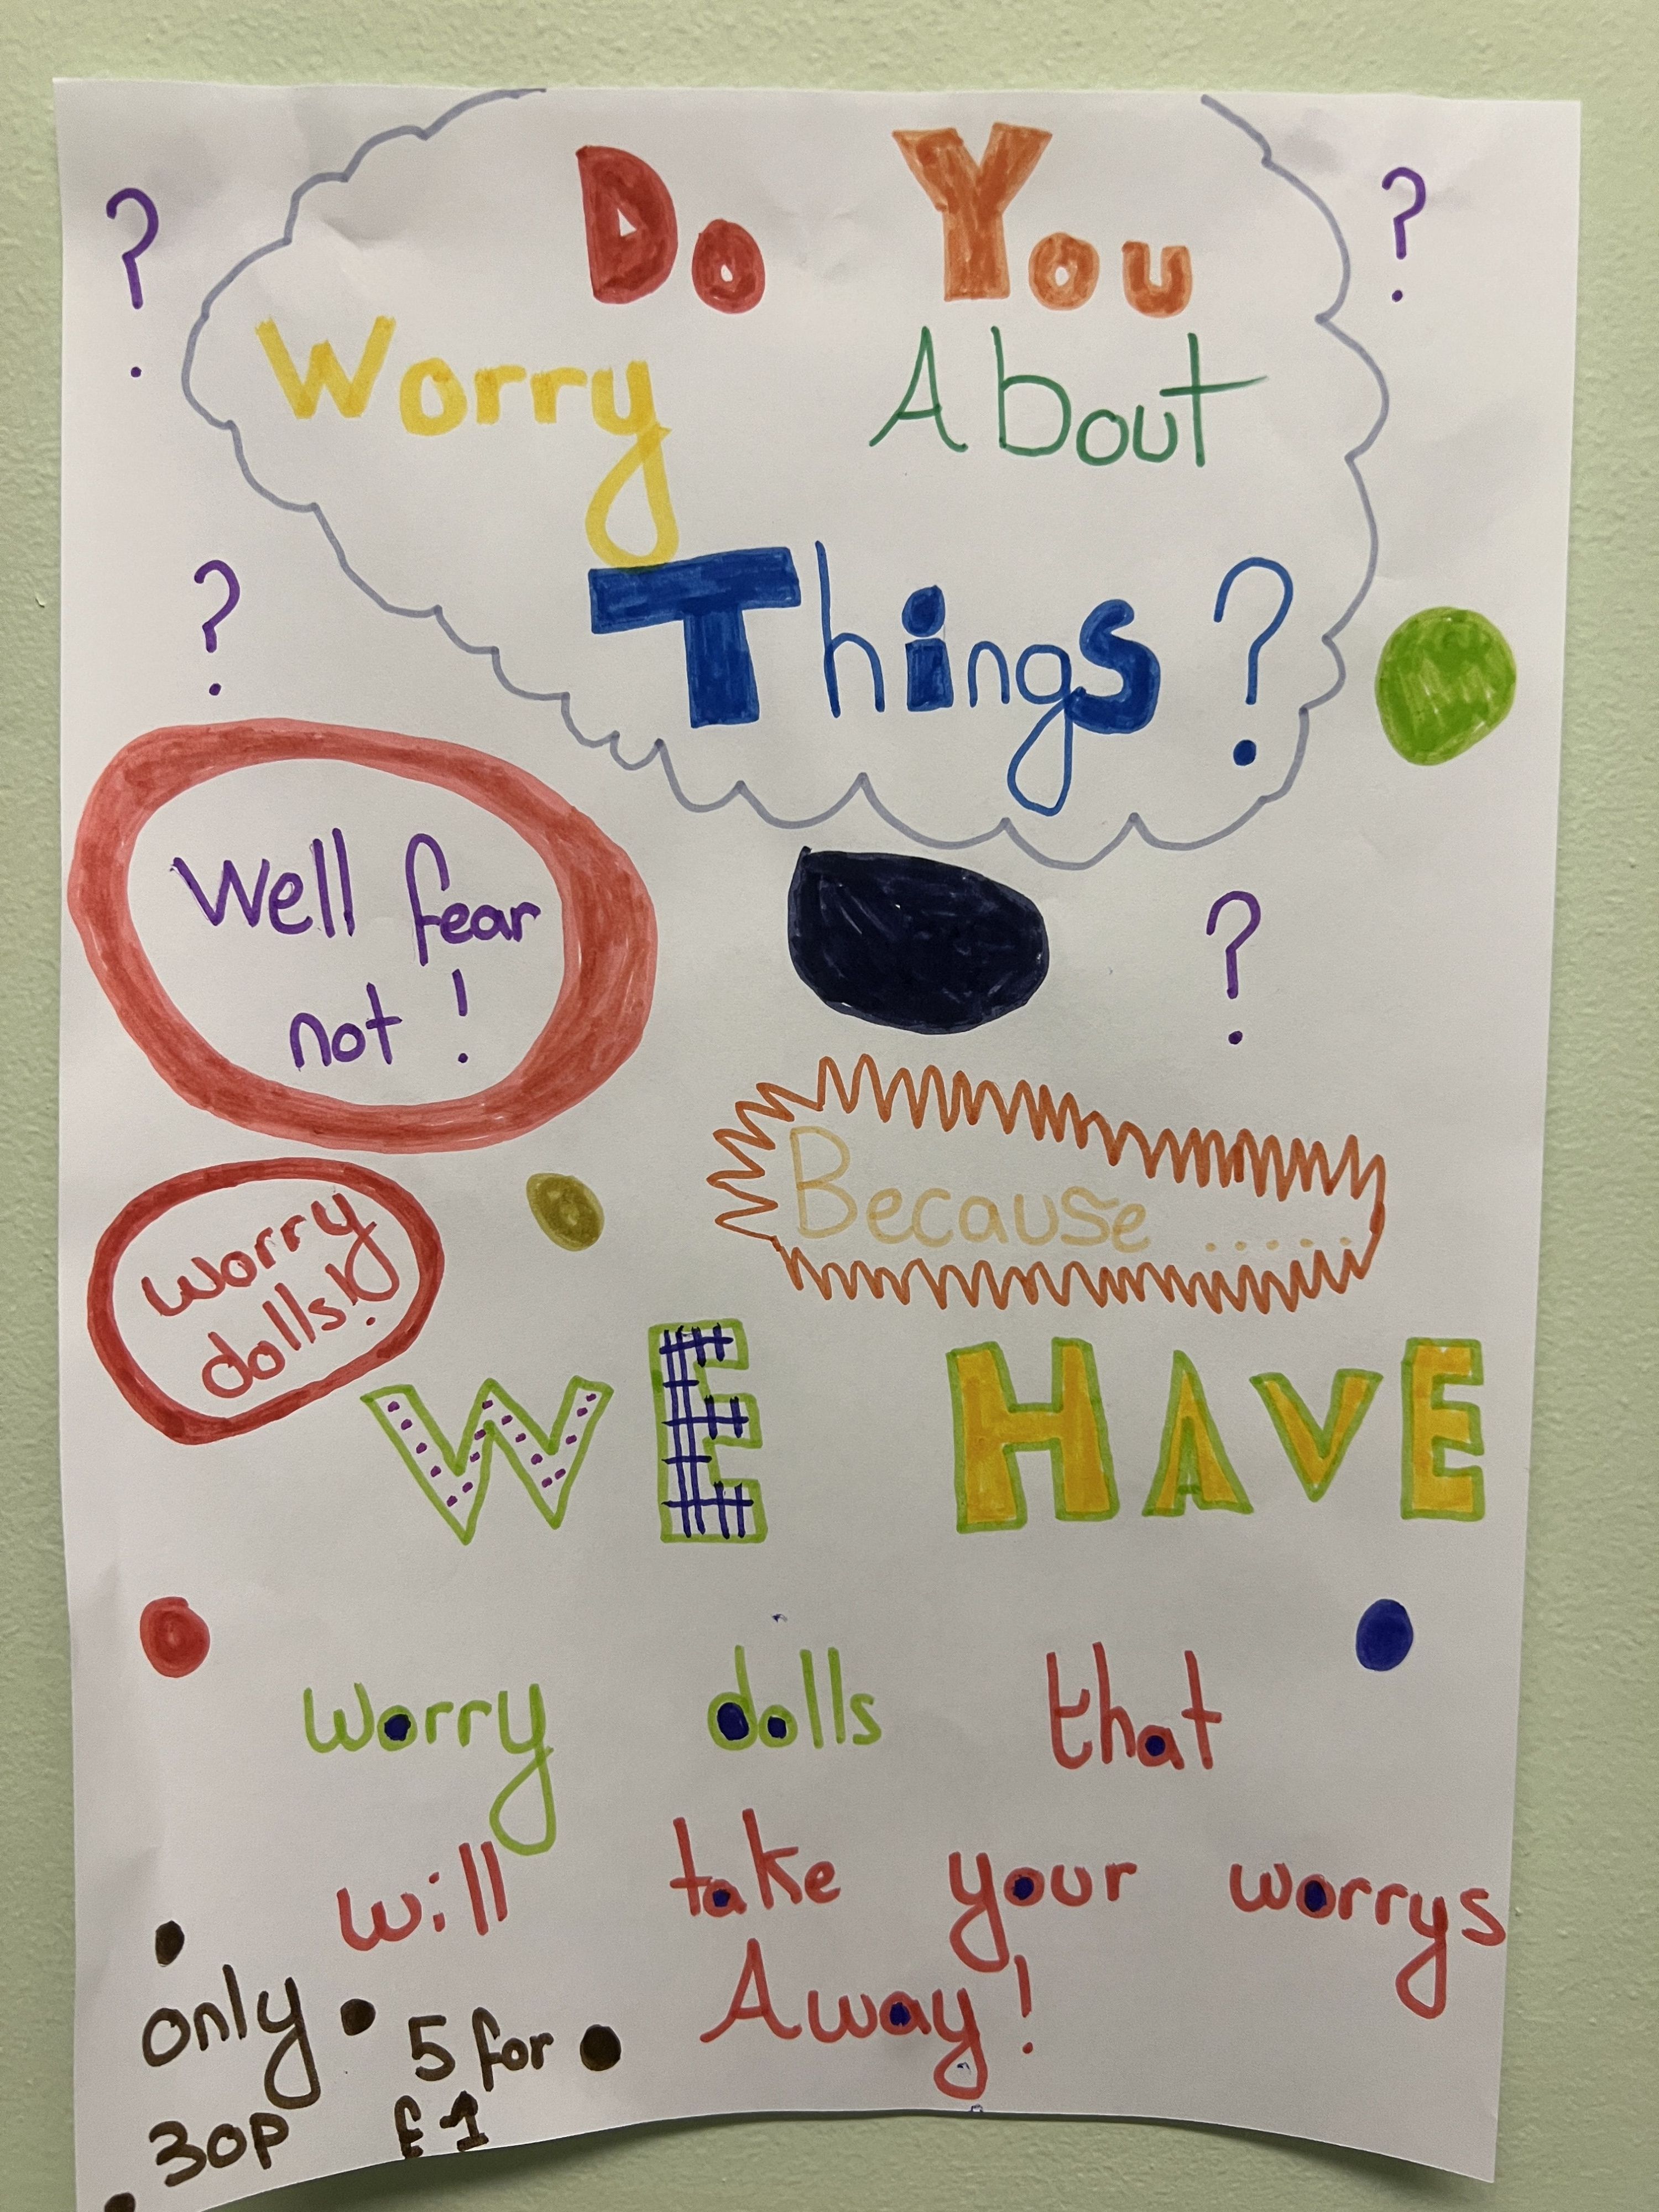 Do You
Worry About
Things?
?
?
?
?
Well fear
not!
Because ......
worry
dolls!
WE HAVE
worry dolls that
will take your worrys
Away!
only
30p
5 for
£1